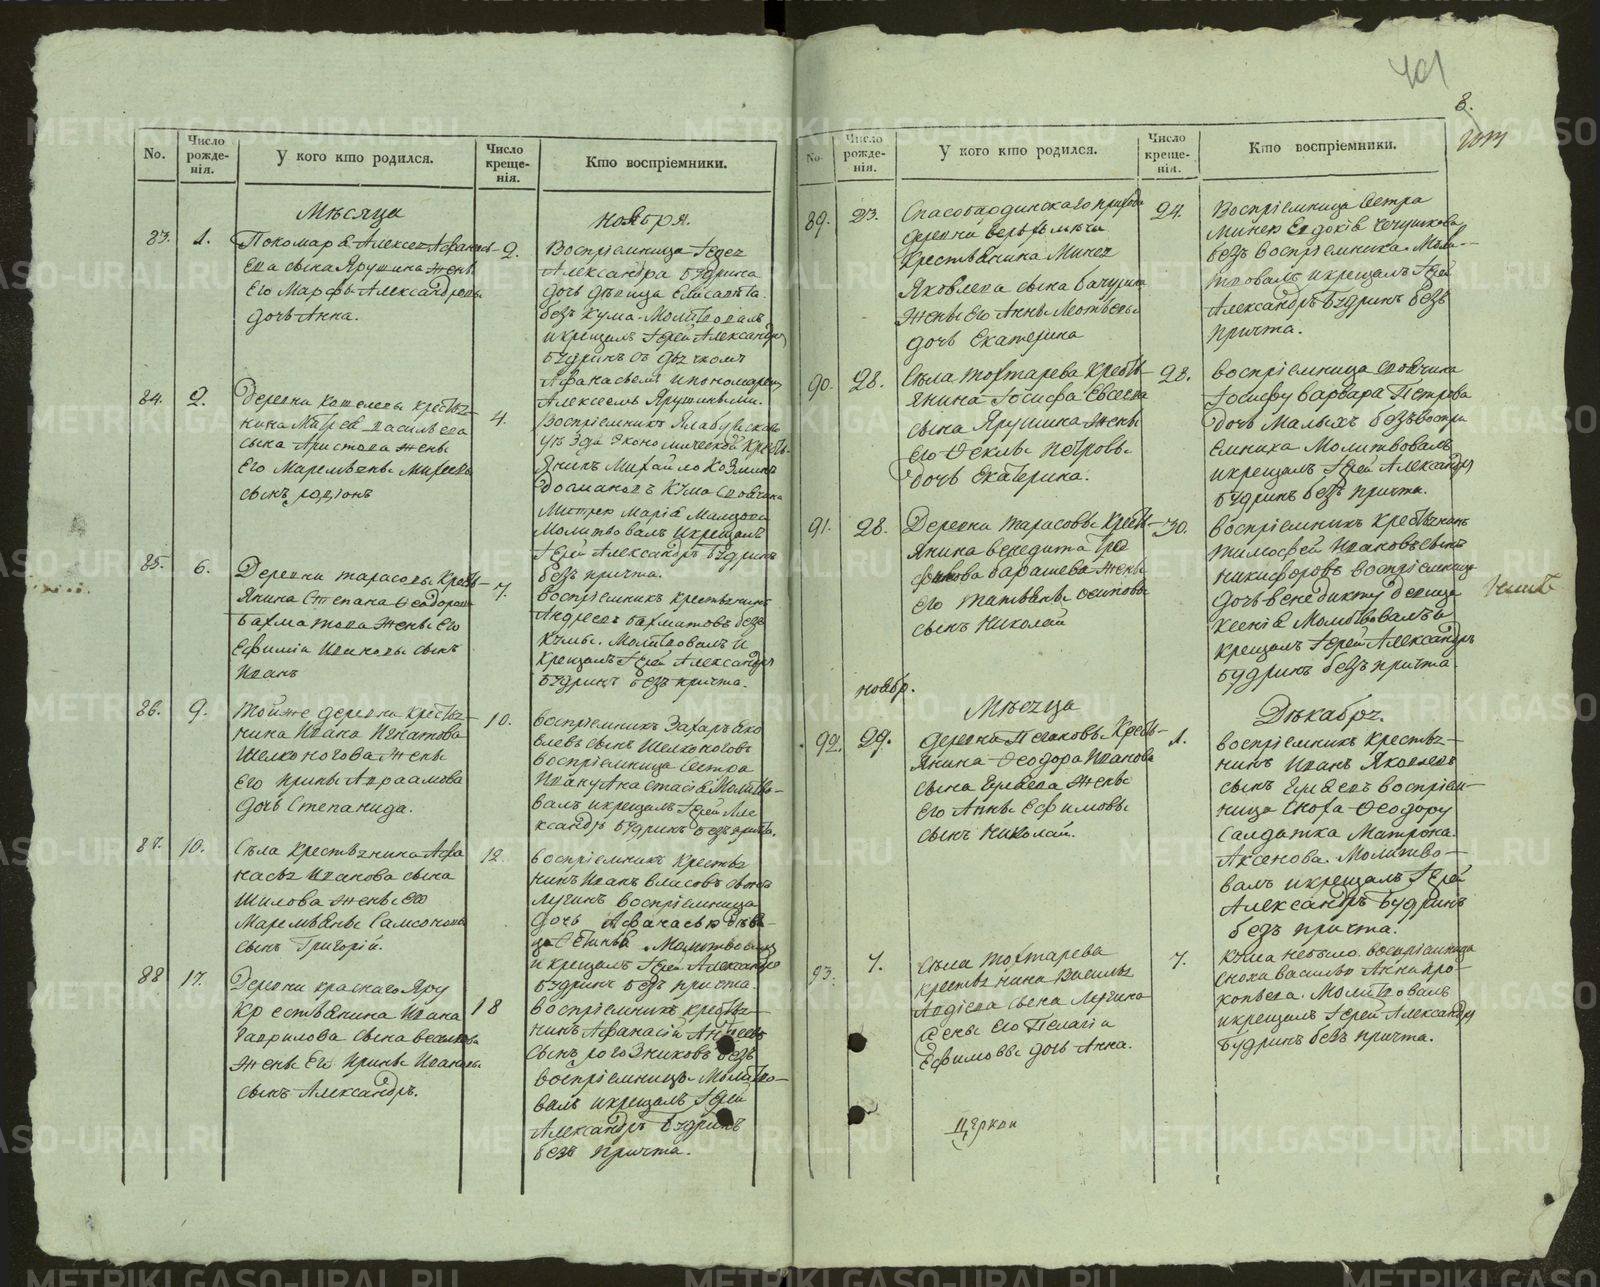 401
8.
No.
Число рожденія.
У кого кто родился.
Число крещенія.
Кто воспріемники.
Мѣсяца
ноября.
83.
1.
Пономаря Алексея Афанась-
ева сына Ярушина жены
Его Марфы Александровы
дочь Анна.
2.
Воспріемница Іерея
Александра Будрина
дочь девица Елисавета.
безъ кума. Молитвовалъ
и крещалъ Іерей Александръ
Будринъ съ дьячкомъ
Афанасьемъ и пономарем
Алексеемъ Ярушиными.
84.
2.
Деревни Кошелевы крестья-
нина Митрея Васильева
сына Аристова жены
Его Маремьяны Михеевы
сынъ родіонъ
4.
Воспріемникъ
уезда Экономической Кресть-
янинъ Михайло Козминъ
кума
Митрею Марія
Молитвовалъ и крещалъ
Іерей Александръ Будринъ
безъ причта.
85.
6.
Деревни тарасовы Кресть-
янина Степана Феодорова
Бахматова жены Его
Ефиміи Ивановы сынъ
Иванъ
7.
воспріемникъ крестьянинъ
Андреевъ Бахматовъ безъ
кумы. Молитвовалъ и
крещалъ Іерей Александръ
Будринъ безъ причта.
86.
9.
той же деревни крестья-
нина Ивана Игнатова
Шелконогова жены
Его Ирины Авраамова
дочь Степанида.
10.
воспріемникъ Захаръ Яко
влевъ сынъ Шелконоговъ
воспріемница сестра
Ивану Анастасія Молитво-
валъ и крещалъ Іерей Але
ксандръ Будринъ безъ причта.
87.
10.
Села крестьянина Афа
насья Иванова сына
Шилова жены Его
Маремьяны Самсоновы
сынъ Григорій.
12.
воспріемникъ крестья
нинъ Иванъ Власовъ сынъ
Лугинъ воспріемница
дочь Афанасью деви-
ца Молитвовалъ
и крещалъ Іерей Александръ
Будринъ безъ причта.
88
17.
Деревни краснаго Яру
Крестьянина Ивана
Гаврилова сына
жены Его Ирины Ивановы
сынъ Александръ.
18
воспріемникъ крестья-
нинъ Афанасій Андреевъ
сынъ рогозниковъ безъ
воспріемницы Молитво-
валъ и крещалъ Іерей
Александръ Будринъ
безъ причта.
No.
Число рожденія.
У кого кто родился.
Число крещенія.
Кто воспріемники.
89.
23.
Спасобородинскаго прихода
деревни
крестьянина Минея
Яковлева сына
жены Его Анны Матвеевы
дочь Екатерина
24.
воспріемница сестра
Минею Евдокія
безъ воспріемника. Моли-
твовалъ и крещалъ Іерей
Александръ Будринъ безъ
причта.
90.
28.
Села тохтарева кресть-
янина Іосифа Евсеева
сына Ярушина жены
его Феклы Петровы
дочь Екатерина.
28.
воспріемница своячина
Іосифу Варвара Петрова
дочь Малыхъ безъ воспрі
емника Молитвовалъ
и крещалъ Іерей Александръ
Будринъ безъ причта.
91.
28.
Деревни тарасовы Кресть-
янина Венедикта
барашева жены
Его Татьяны Осиповы
сынъ Николай
30.
воспріемникъ крестьянинъ
тимофей Ивановъ сынъ
никифоровъ воспріемница
дочь венедикту девица
Ксенія Молитвовалъ и
крещалъ Іерей Александръ
Будринъ безъ причта.
ноябр.
Мѣсяца
Декабря.
92.
29.
деревни Кресть-
янина Феодора Иванова
сына жены
Его Анны Ефимовы
сынъ Николай.
1.
воспріемникъ крестья-
нинъ Иванъ Яковлевъ
сынъ воспріем-
ница сноха Феодору
салдатка Матрона
Аксенова. Молитво-
валъ и крещалъ Іерей
Александръ Будринъ
безъ причта.
93.
7.
Села тохтарева
крестьянина Василья
Авдіева сына Лугина
жены его Пелагіи
Ефимовы дочь Анна.
7.
Кума небыло воспріемница
сноха Василью Анна Про-
копьева. Молитвовалъ
и крещалъ Іерей Александръ
Будринъ безъ причта.
церкви
METRIKI.GASO-URAL.RU